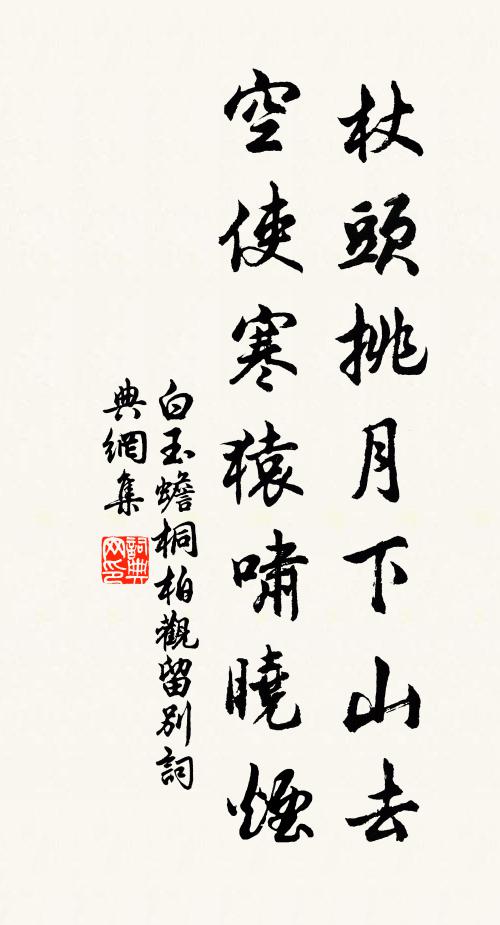 杖頭挑月下山去
空使寒猿嘯曉煙
白玉蟾桐柏觀留別詞
典網集
詞典
网印